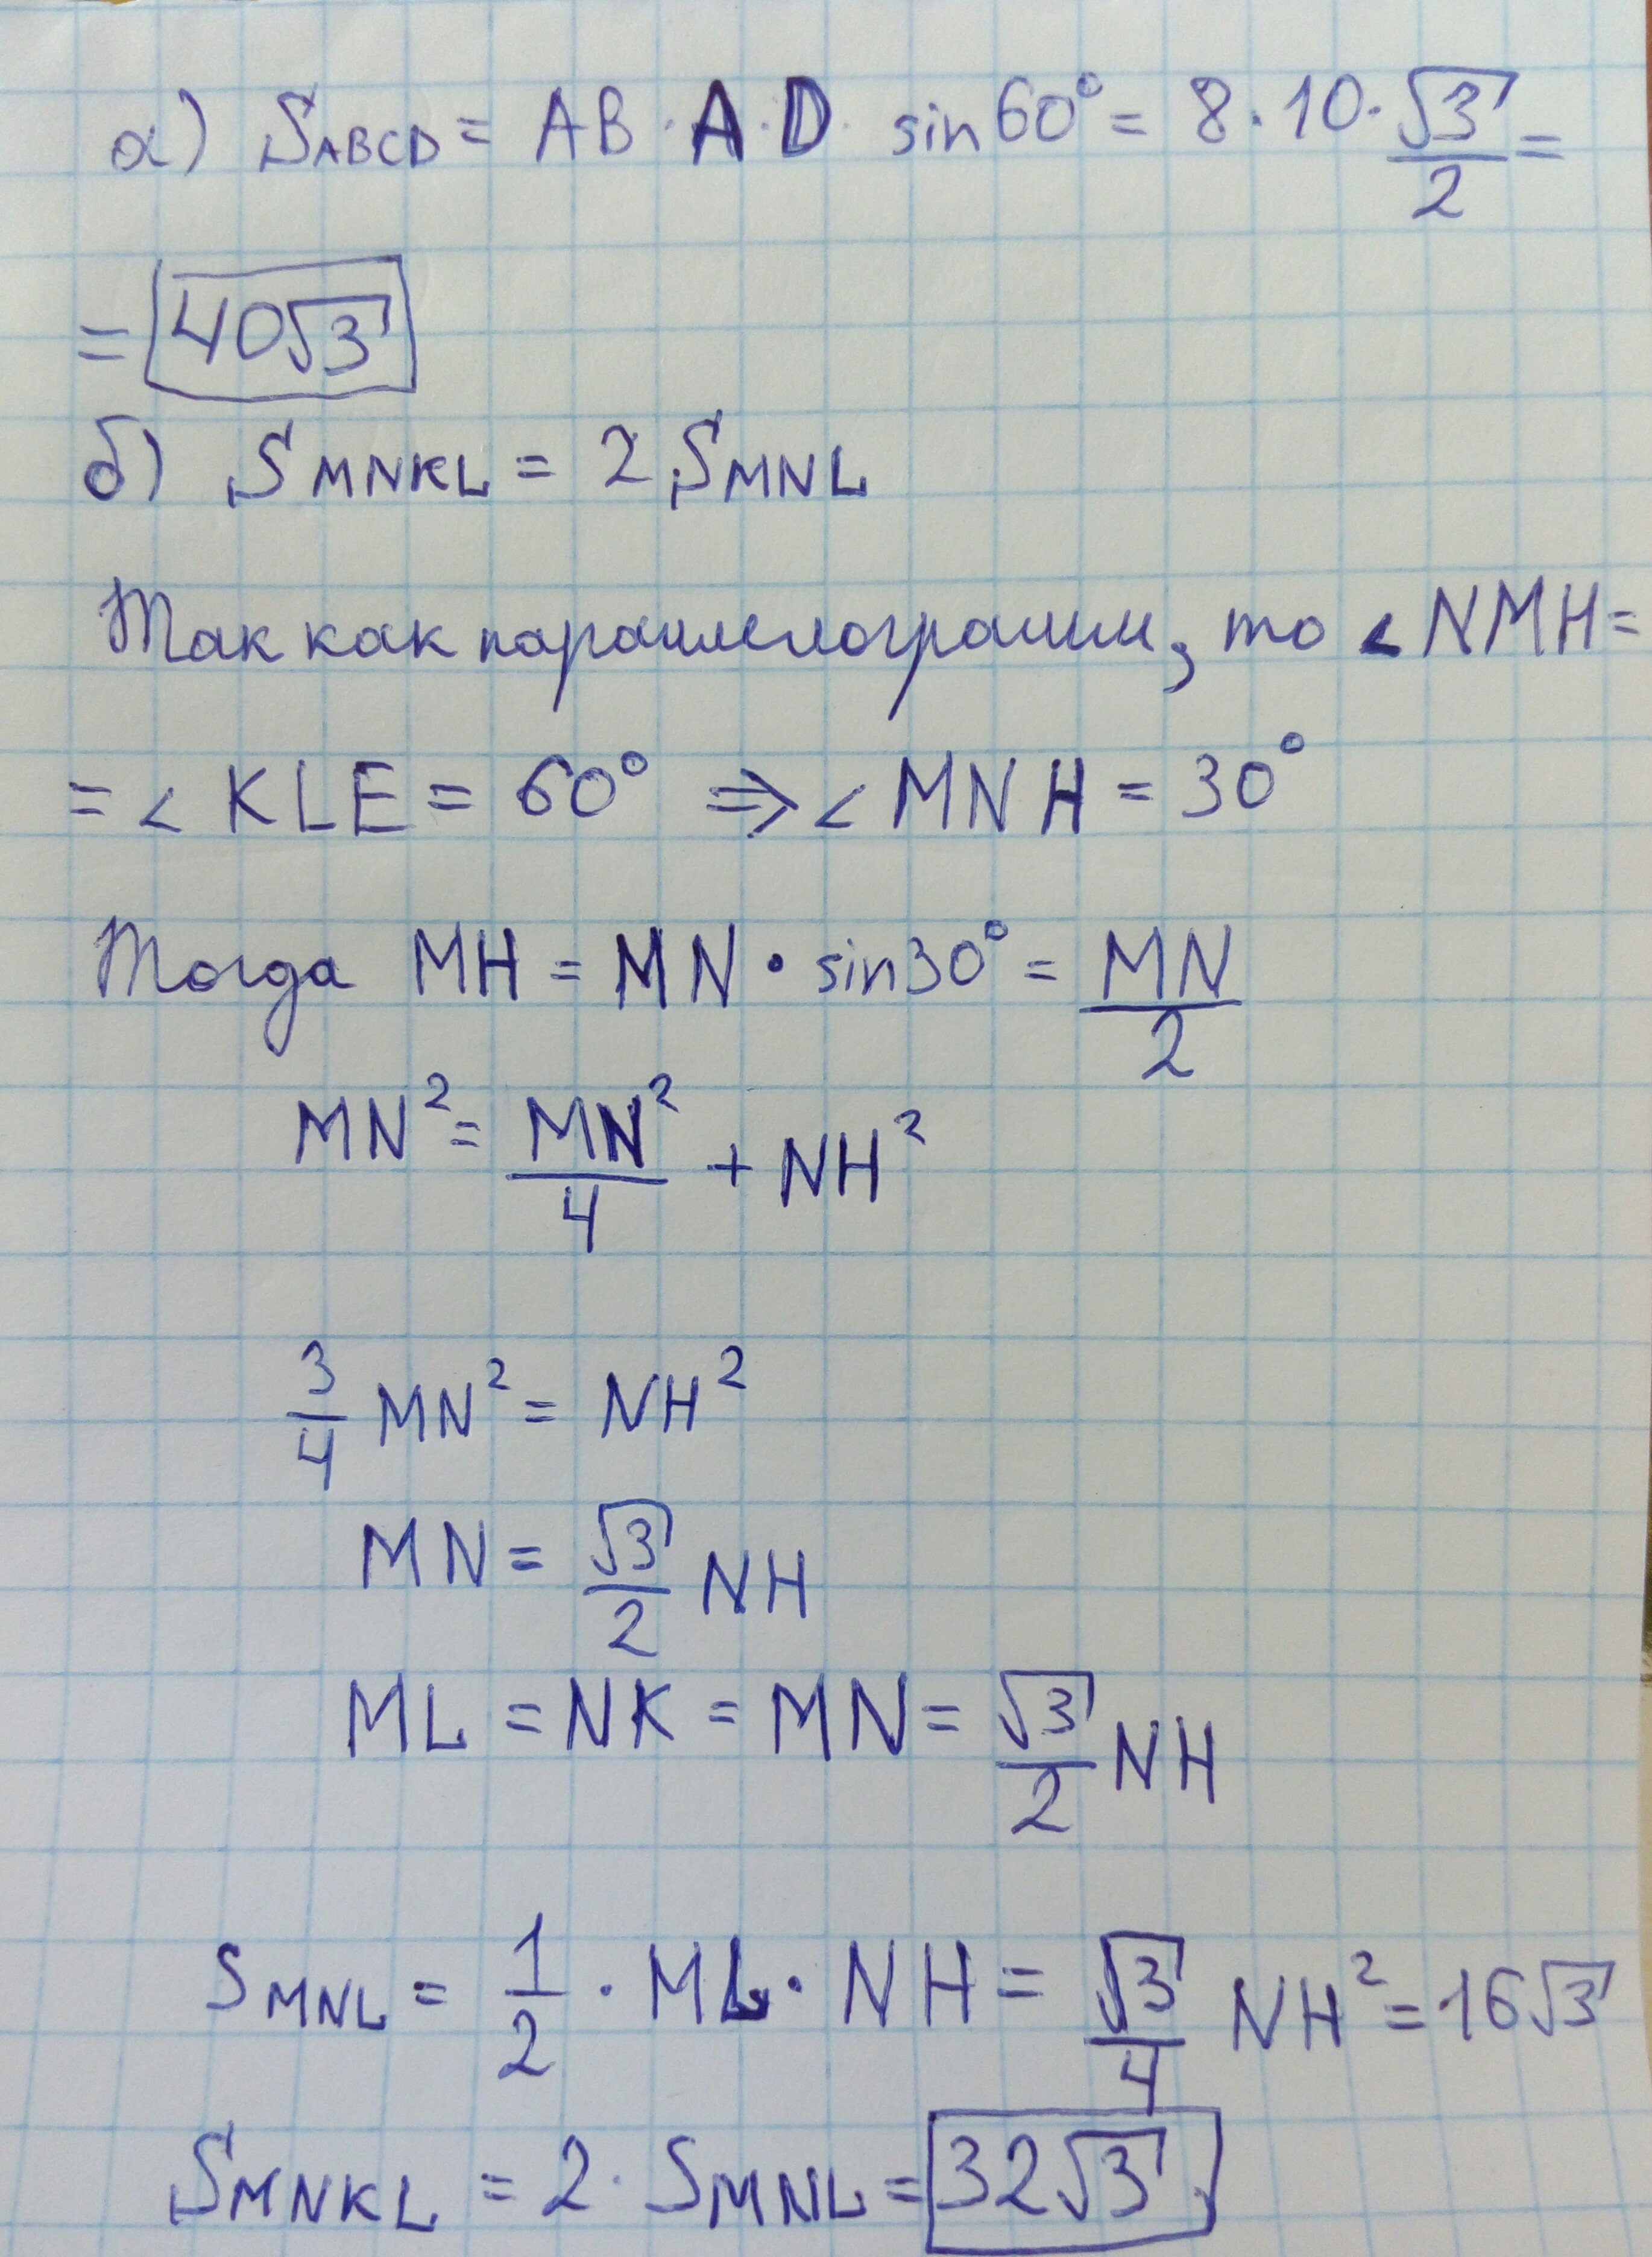 а) S_ABCD = AB · A·D · sin60° = 8·10·√3/2 =
= 40√3
б) S_MNKL = 2 S_MNL
Так как параллелограмм, то ∠NMH =
= ∠KLE = 60° ⇒ ∠MNH = 30°
Тогда MH = MN · sin30° = MN/2
MN² = MN²/4 + NH²
3/4 MN² = NH²
MN = √3/2 NH
ML = NK = MN = √3/2 NH
S_MNL = 1/2 · ML · NH = √3/4 NH² = 16√3
S_MNKL = 2 · S_MNL = 32√3